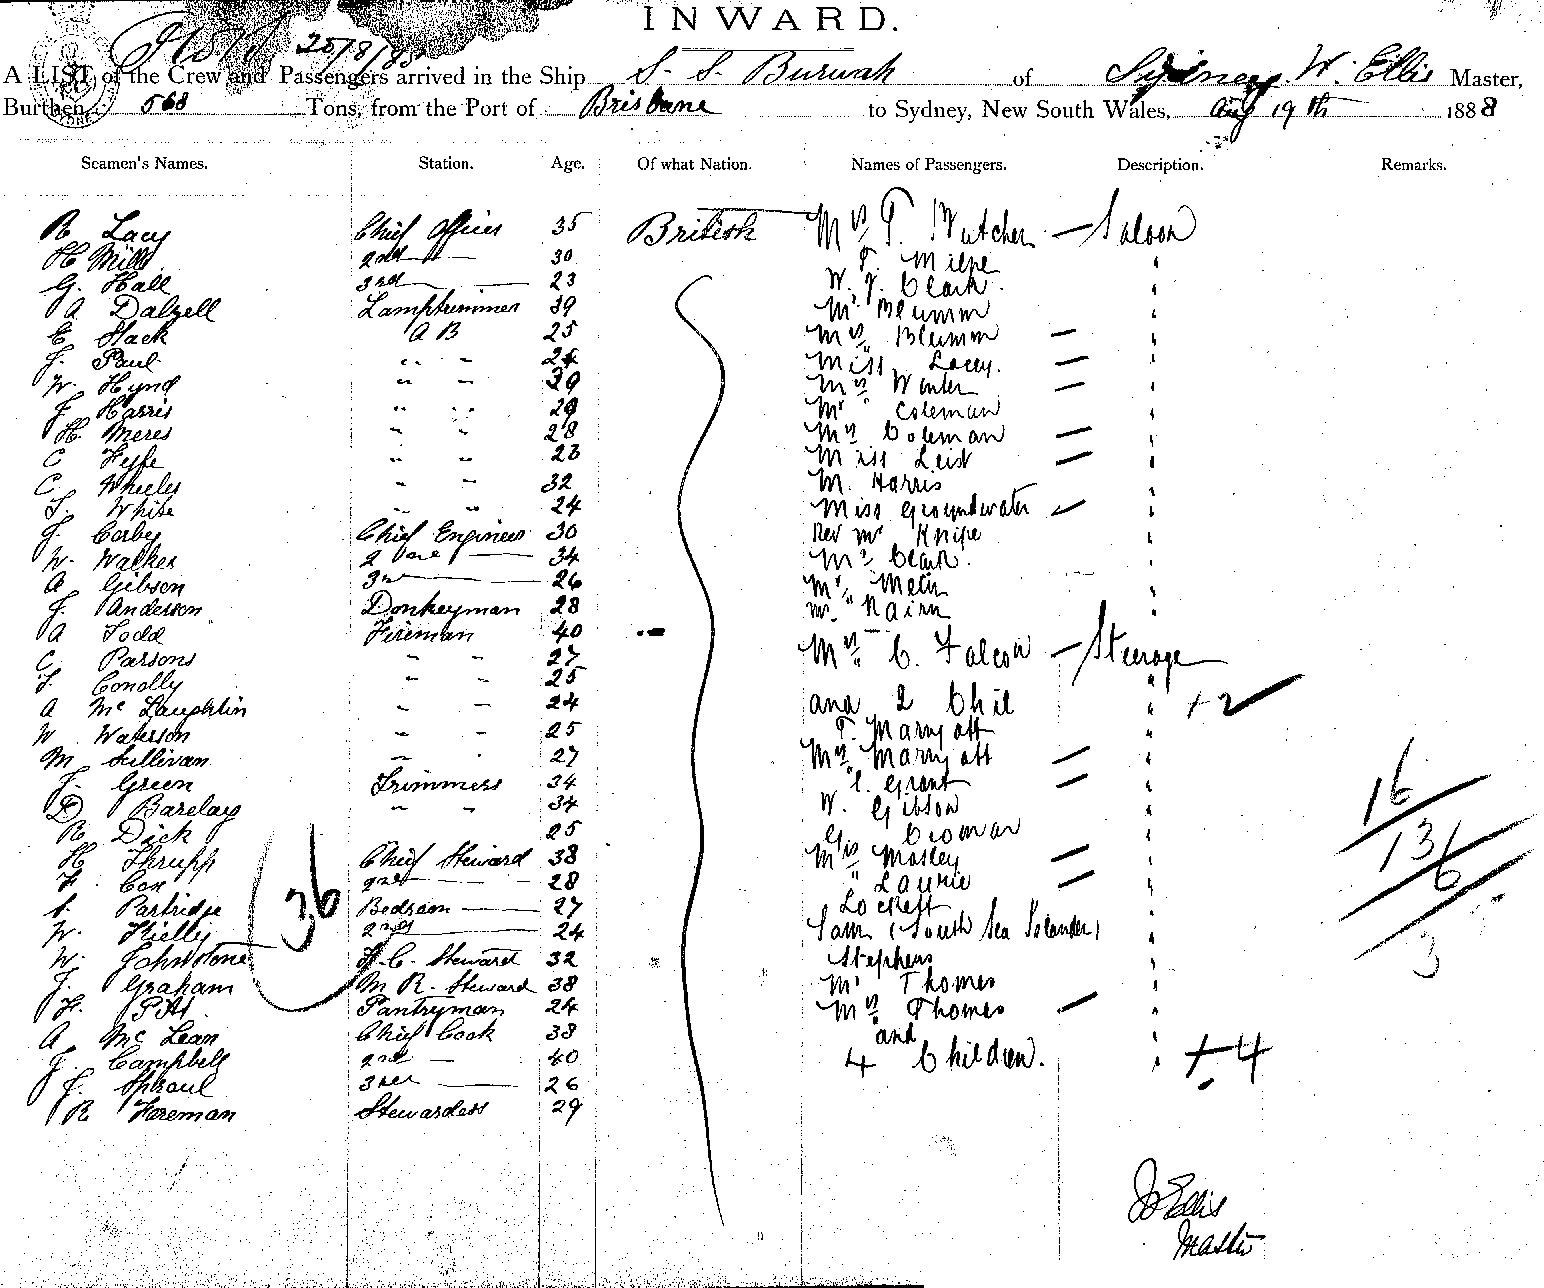 INWARD.
25/8/88
A LIST of the Crew and Passengers arrived in the Ship S. S. Burwah of Sydney, W. Ellis Master,
Burthen, 568 Tons, from the Port of Brisbane to Sydney, New South Wales, Aug 19th 1888
Seamen's Names. Station. Age. Of what Nation. Names of Passengers. Description. Remarks.
R Lacy Chief Officer 35 British Mrs T. Butcher — Saloon
H Mills 2nd — 30 F. Milne "
G. Hall 3rd — 23 W. J. Clark.
A Dalzell Lamptrimmer 39 Mr Blumm "
E Stack A B 25 Mrs Blumm — "
J. Paul " " 24 Miss Lacey. — "
W. Hynd " " 39 Mrs Winter — "
J. Harris " " 29 Mr Coleman "
H. Meres " " 28 Mrs Coleman — "
C Fyfe " " 23 Miss Leist — "
C. Wheeler " " 32 M. Harris "
T. White " " 24 Miss Groundwater — "
J. Corby Chief Engineer 30 Rev Mr Knipe "
W. Walker 2 — 34 Mr Clark. "
A Gibson 3rd — 26 Mr "
J. Anderson Donkeyman 28 Mr. Nairn "
A Todd Fireman 40 Mrs C. Falcon — Steerage
C. Parsons " " 27
T. Conolly " " 25 "
A McLaughlin " " 24 and 2 Chil " +2
W Waterson " " 25 T. Marryatt "
M Sullivan " " 27 Mrs Marryatt — "
J. Green Trimmers 34 " C. Grant — " 16
D Barclay " " 34 W. Gibson "
R Dick 25 Geo Cromar " 13
H Thrupp Chief Steward 38 Mrs Mosley — " 6
F. Cox 2nd — 28 " Laurie — "
S. Partridge Bedroom — 27 Lockett "
36
W. Kielly 2nd — 24 Sam (South Sea Islander) "
W. Johnstone F.C. Steward 32 Stephens " 3
J. Graham M R. Steward 38 Mr Thomas "
F. Pitt Pantryman 24 Mrs Thomas — "
A McLean Chief Cook 38 and "
J. Campbell 2nd — 40 4 Children. " +4
J. Sproul 3rd — 26
R Foreman Stewardess 29
W Ellis
Master